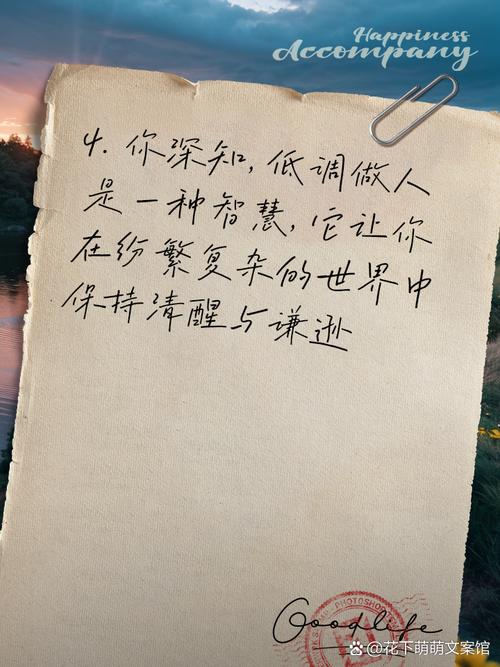 Happiness
Accompany
4. 你深知,低调做人
是一种智慧,它让你
在纷繁复杂的世界中
保持清醒与谦逊
Goodlife
@花下萌萌文案馆